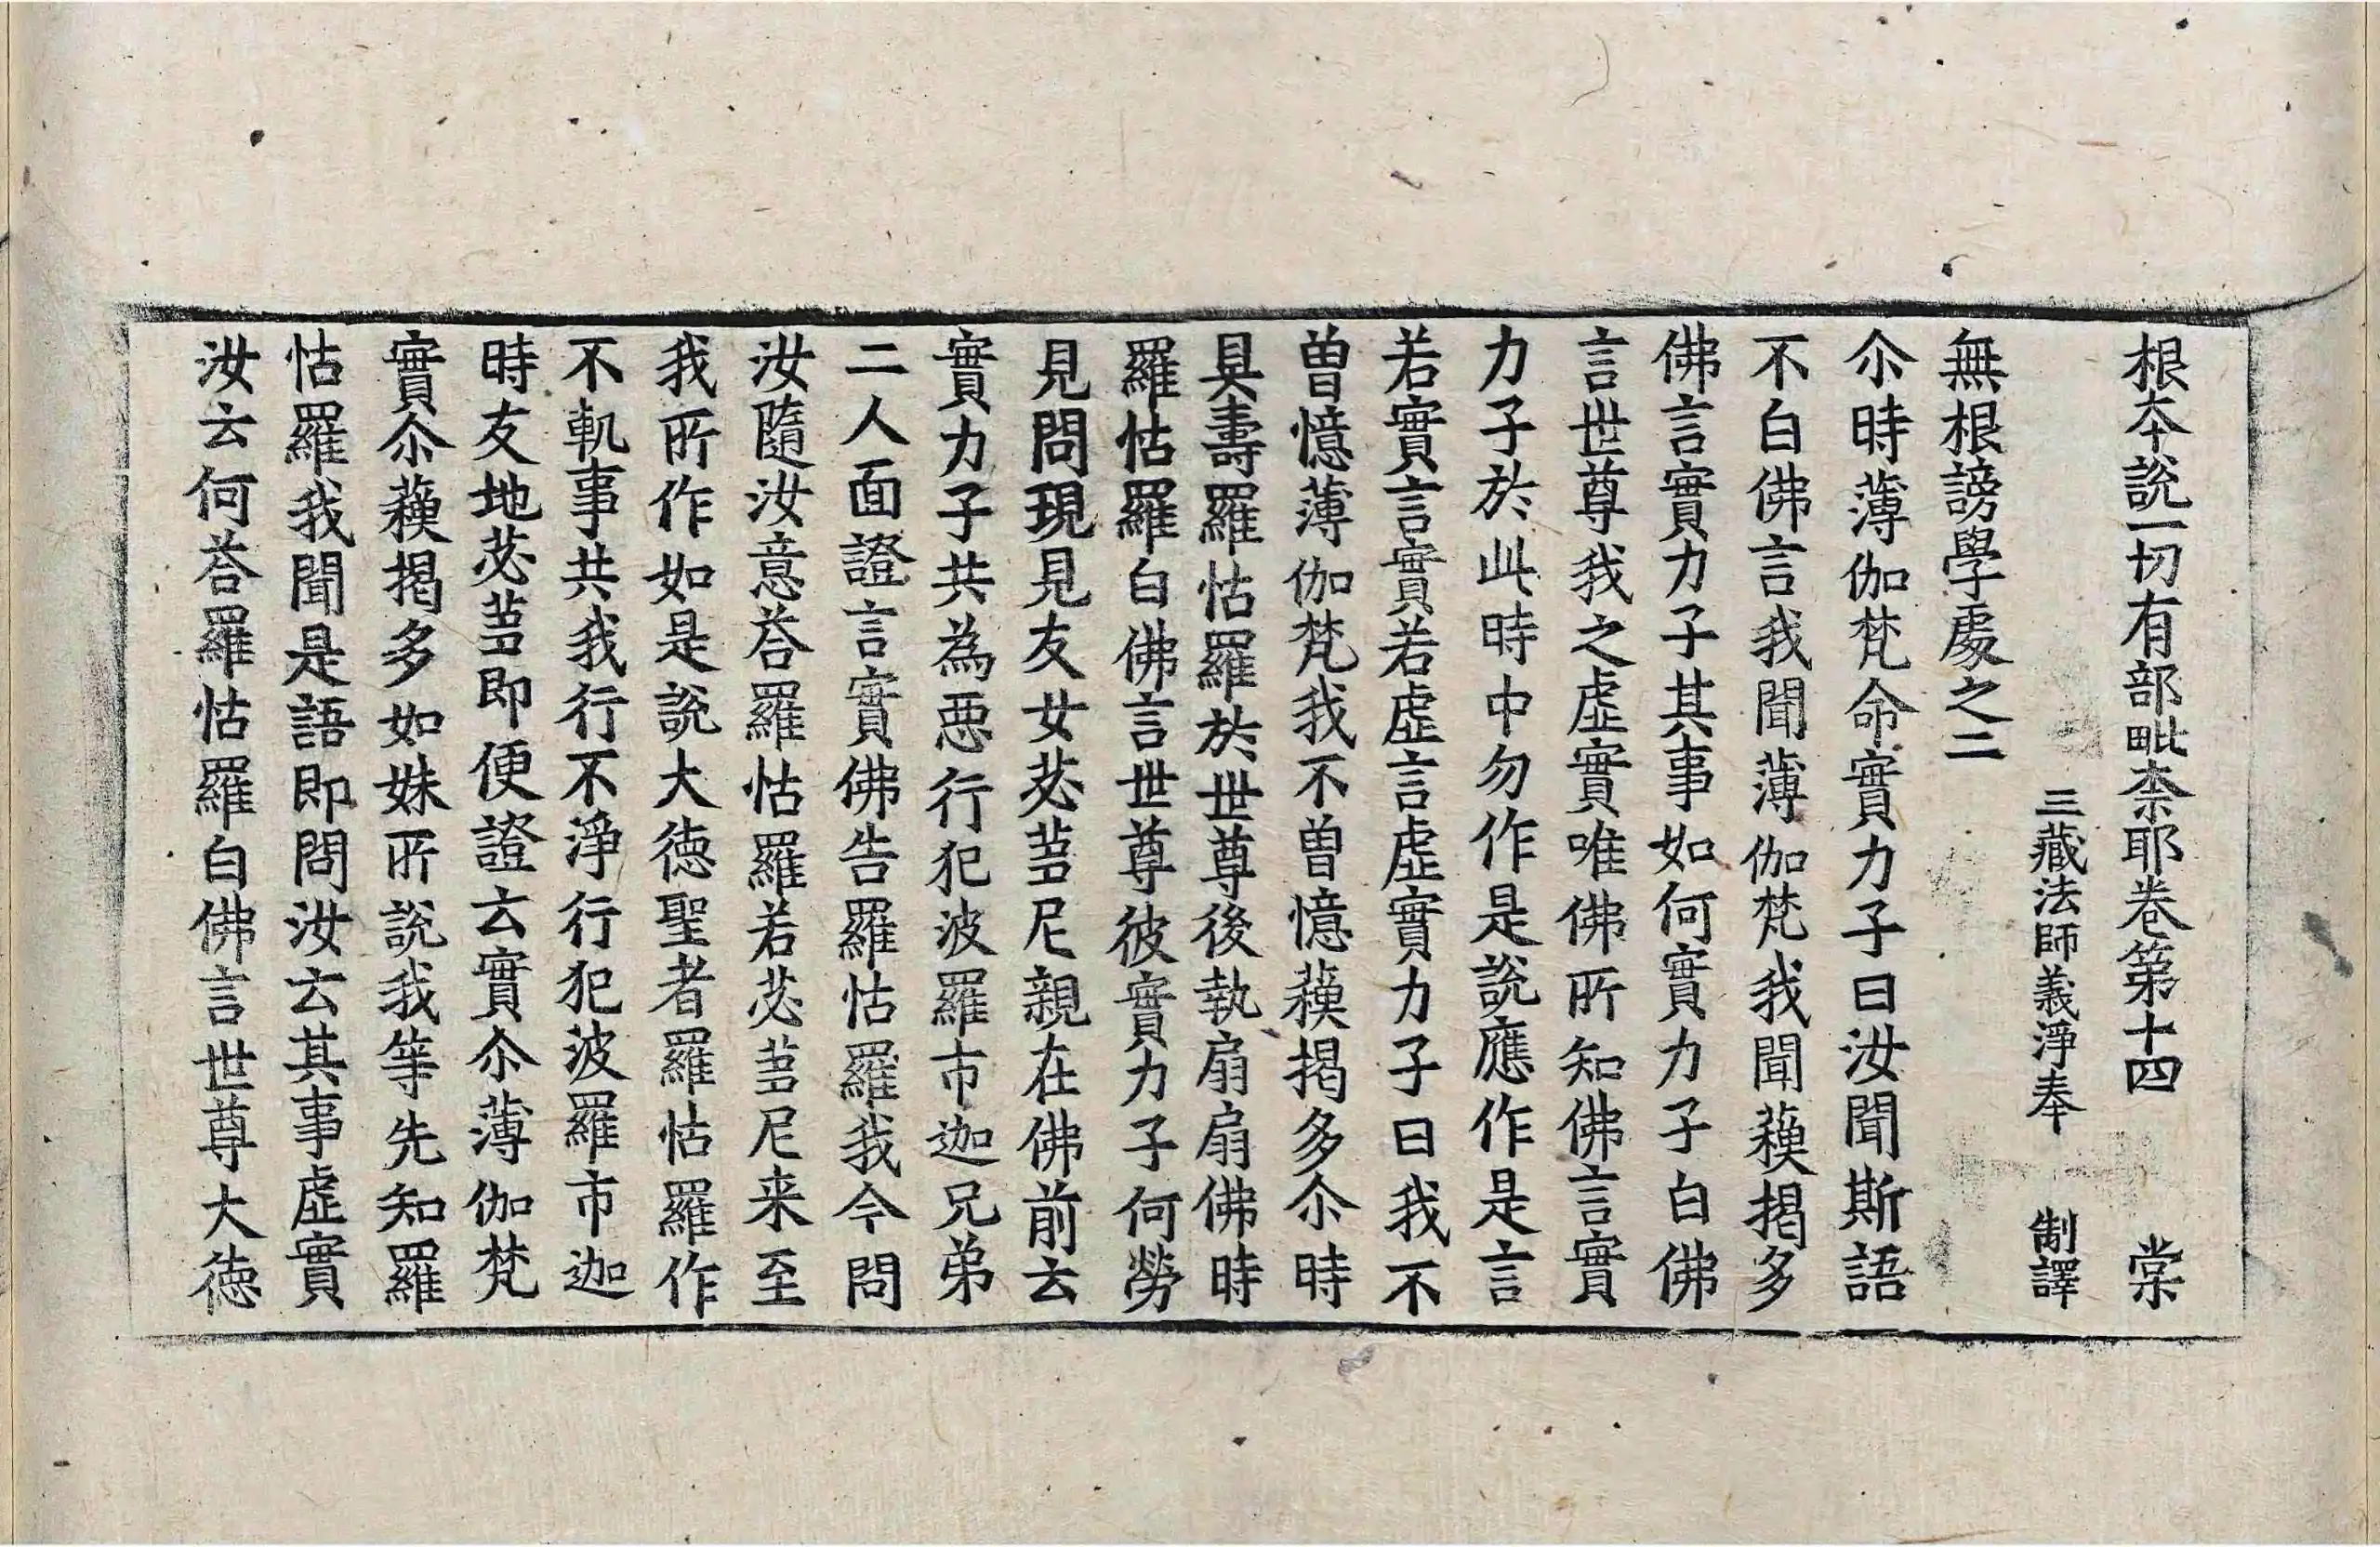 根本說一切有部毗柰耶卷第十四 棠
三藏法師義淨奉 制譯
無根謗學處之二
尒時薄伽梵命實力子曰汝聞斯語
不白佛言我聞薄伽梵我聞蘓揭多
佛言實力子其事如何實力子白佛
言世尊我之虛實唯佛所知佛言實
力子於此時中勿作是說應作是言
若實言實若虛言虛實力子曰我不
曾憶薄伽梵我不曾憶蘓揭多尒時
具壽羅怙羅於世尊後執扇扇佛時
羅怙羅白佛言世尊彼實力子何勞
見問現見友女苾蒭尼親在佛前云
實力子共為惡行犯波羅市迦兄弟
二人面證言實佛告羅怙羅我今問
汝隨汝意荅羅怙羅若苾蒭尼来至
我所作如是說大德聖者羅怙羅作
不軌事共我行不淨行犯波羅市迦
時友地苾蒭即便證云實尒薄伽梵
實尒蘓揭多如妹所說我等先知羅
怙羅我聞是語即問汝云其事虛實
汝云何荅羅怙羅白佛言世尊大德